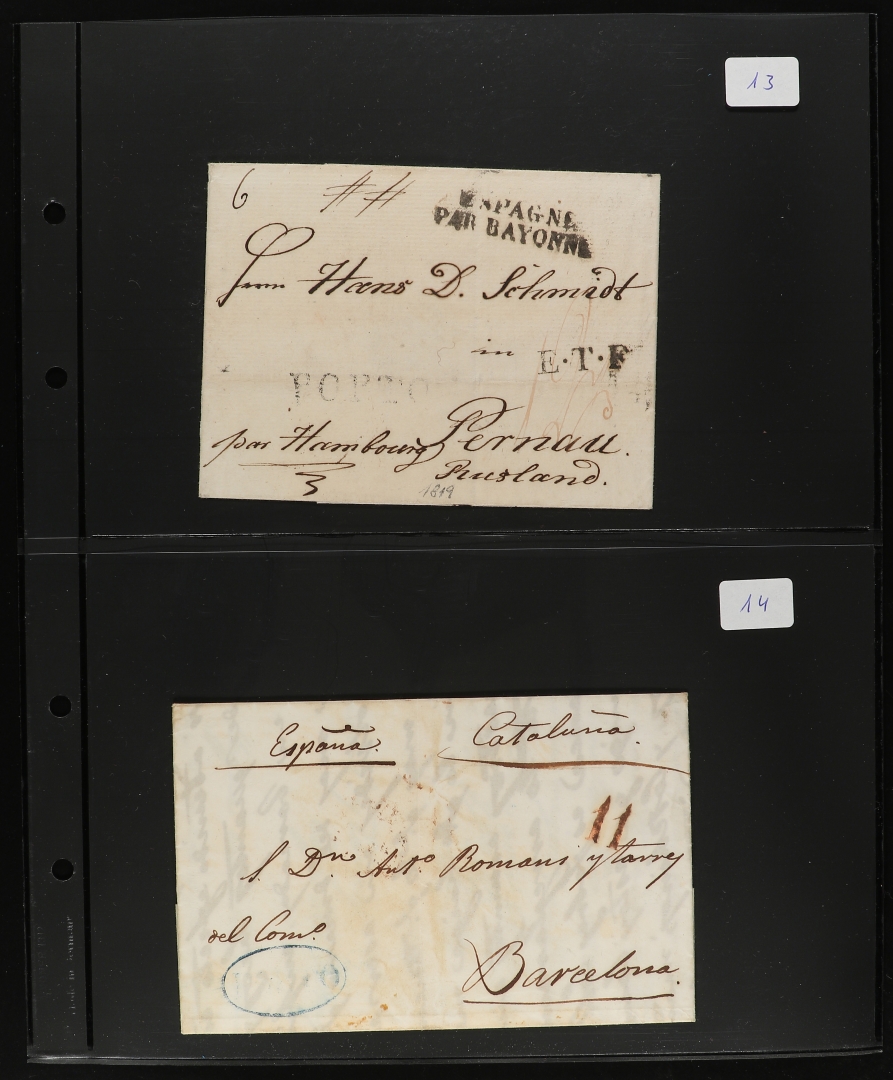 13
6
ESPAGNE
PAR BAYONNE
Herrn Hans D. Schmidt
in
E.T.F
PORTO
par Hambourg Pernau.
Rusland.
1819
14
España.
Cataluña.
11
S. Dn. Anto. Romani y Tarres
del Como.
Barcelona.